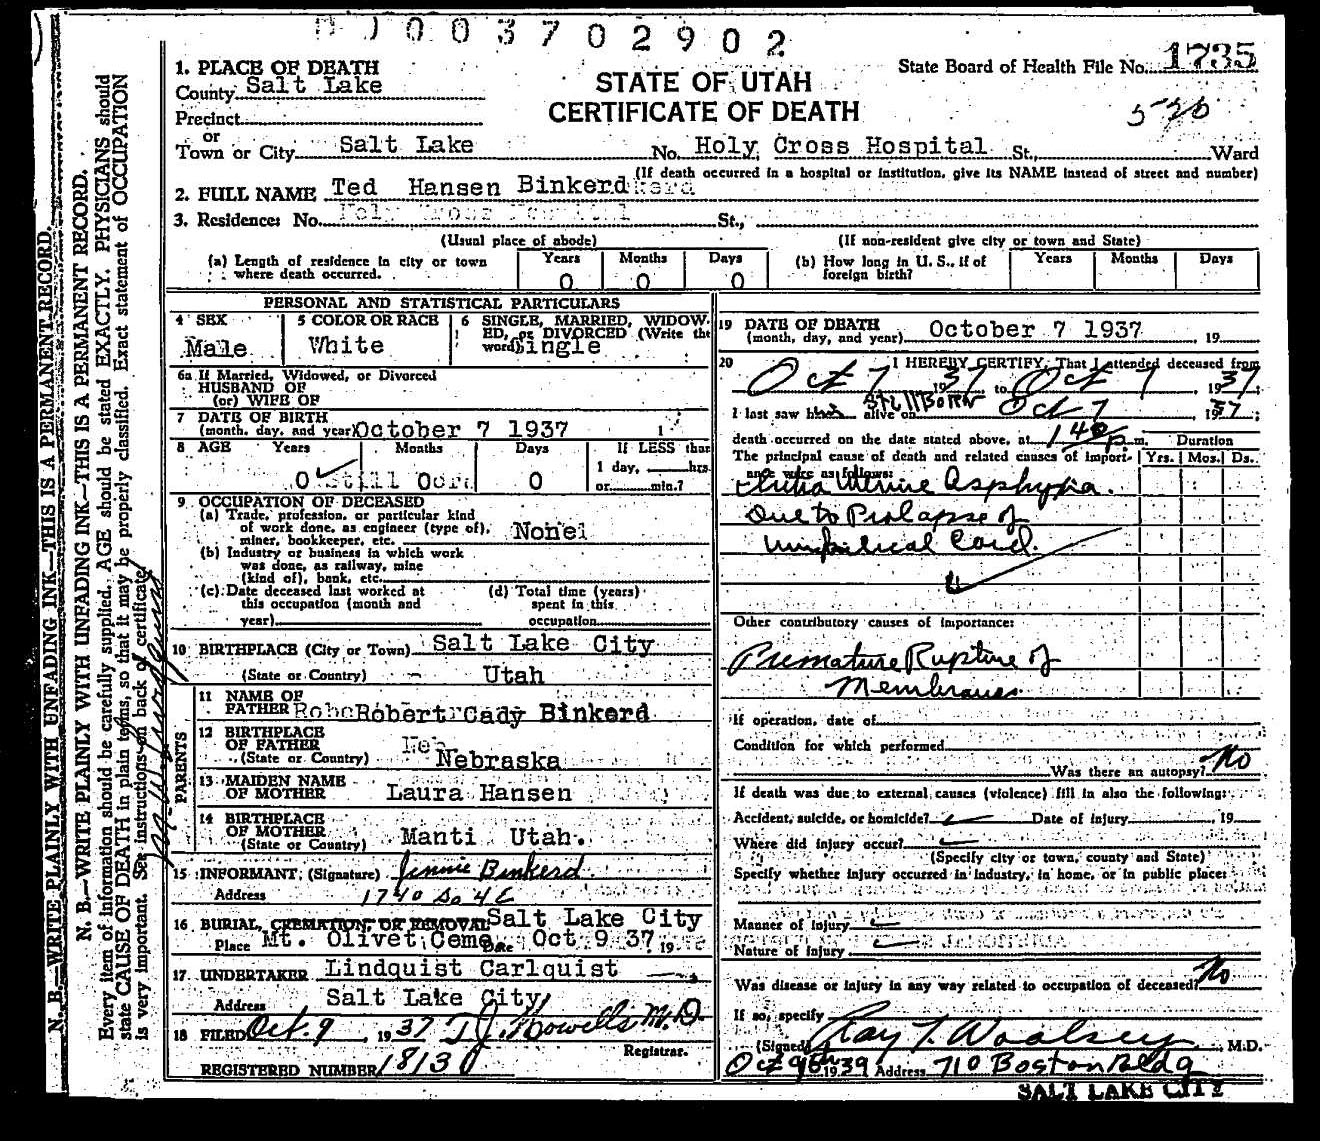 0003702902
1. PLACE OF DEATH
County Salt Lake
STATE OF UTAH
CERTIFICATE OF DEATH
State Board of Health File No. 1735
Precinct
or
Town or City Salt Lake No. Holy Cross Hospital St., Ward
(If death occurred in a hospital or institution, give its NAME instead of street and number)
2. FULL NAME Ted Hansen Binkerd
3. Residence: No. Holy Cross Hospital St.,
(Usual place of abode) (If non-resident give city or town and State)
(a) Length of residence in city or town where death occurred. Years 0 Months 0 Days 0
(b) How long in U. S., if of foreign birth? Years Months Days
PERSONAL AND STATISTICAL PARTICULARS
4 SEX Male
5 COLOR OR RACE White
6 SINGLE, MARRIED, WIDOWED, or DIVORCED (Write the word) Single
6a If Married, Widowed, or Divorced
HUSBAND OF
(or) WIFE OF
7 DATE OF BIRTH
(month, day, and year) October 7 1937
8 AGE Years Months Days If LESS than
1 day, hrs.
or min.?
0 Still Born 0
9 OCCUPATION OF DECEASED
(a) Trade, profession, or particular kind
of work done, as engineer (type of),
miner, bookkeeper, etc. None
(b) Industry or business in which work
was done, as railway, mine
(kind of), bank, etc.
(c) Date deceased last worked at
this occupation (month and
year)
(d) Total time (years)
spent in this
occupation
10 BIRTHPLACE (City or Town) Salt Lake City
(State or Country) - Utah
PARENTS
11 NAME OF
FATHER Robert Cady Binkerd
12 BIRTHPLACE
OF FATHER
(State or Country) Nebraska
13 MAIDEN NAME
OF MOTHER Laura Hansen
14 BIRTHPLACE
OF MOTHER
(State or Country) Manti Utah.
15 INFORMANT, (Signature) Jennie Binkerd
Address 1740 So 4 E
16 BURIAL, CREMATION, OR REMOVAL Salt Lake City
Place Mt. Olivet Ceme Date Oct 9 37 19
17 UNDERTAKER Lindquist Carlquist
Address Salt Lake City
18 FILED Oct. 9, 1937 T J. Howells, M.D.
Registrar.
REGISTERED NUMBER 18130
19 DATE OF DEATH
(month, day, and year) October 7 1937 , 19
20 I HEREBY CERTIFY, That I attended deceased from
Oct 7, 1937 to Oct 7, 1937
I last saw him alive on Still Born Oct 7, 1937;
death occurred on the date stated above, at 1 40 p m. Duration
The principal cause of death and related causes of importance were as follows: Yrs. Mos. Ds.
Intra Uterine Asphyxia.
Due to Prolapse of
Umbilical Cord.
Other contributory causes of importance:
Premature Rupture of
Membranes
If operation, date of
Condition for which performed
Was there an autopsy? No
If death was due to external causes (violence) fill in also the following:
Accident, suicide, or homicide? Date of injury , 19
Where did injury occur?
(Specify city or town, county and State)
Specify whether injury occurred in industry, in home, or in public place:
Manner of injury
Nature of injury
Was disease or injury in any way related to occupation of deceased? No
If so, specify
(Signed) Ray T. Woolsey M.D.
Oct 9th 1939 Address 710 Boston Bldg
SALT LAKE CITY
N. B.—WRITE PLAINLY WITH UNFADING INK—THIS IS A PERMANENT RECORD.
N. B.—WRITE PLAINLY WITH UNFADING INK—THIS IS A PERMANENT RECORD.
Every item of information should be carefully supplied. AGE should be stated EXACTLY. PHYSICIANS should
state CAUSE OF DEATH in plain terms, so that it may be properly classified. Exact statement of OCCUPATION
is very important. See instructions on back of certificate.